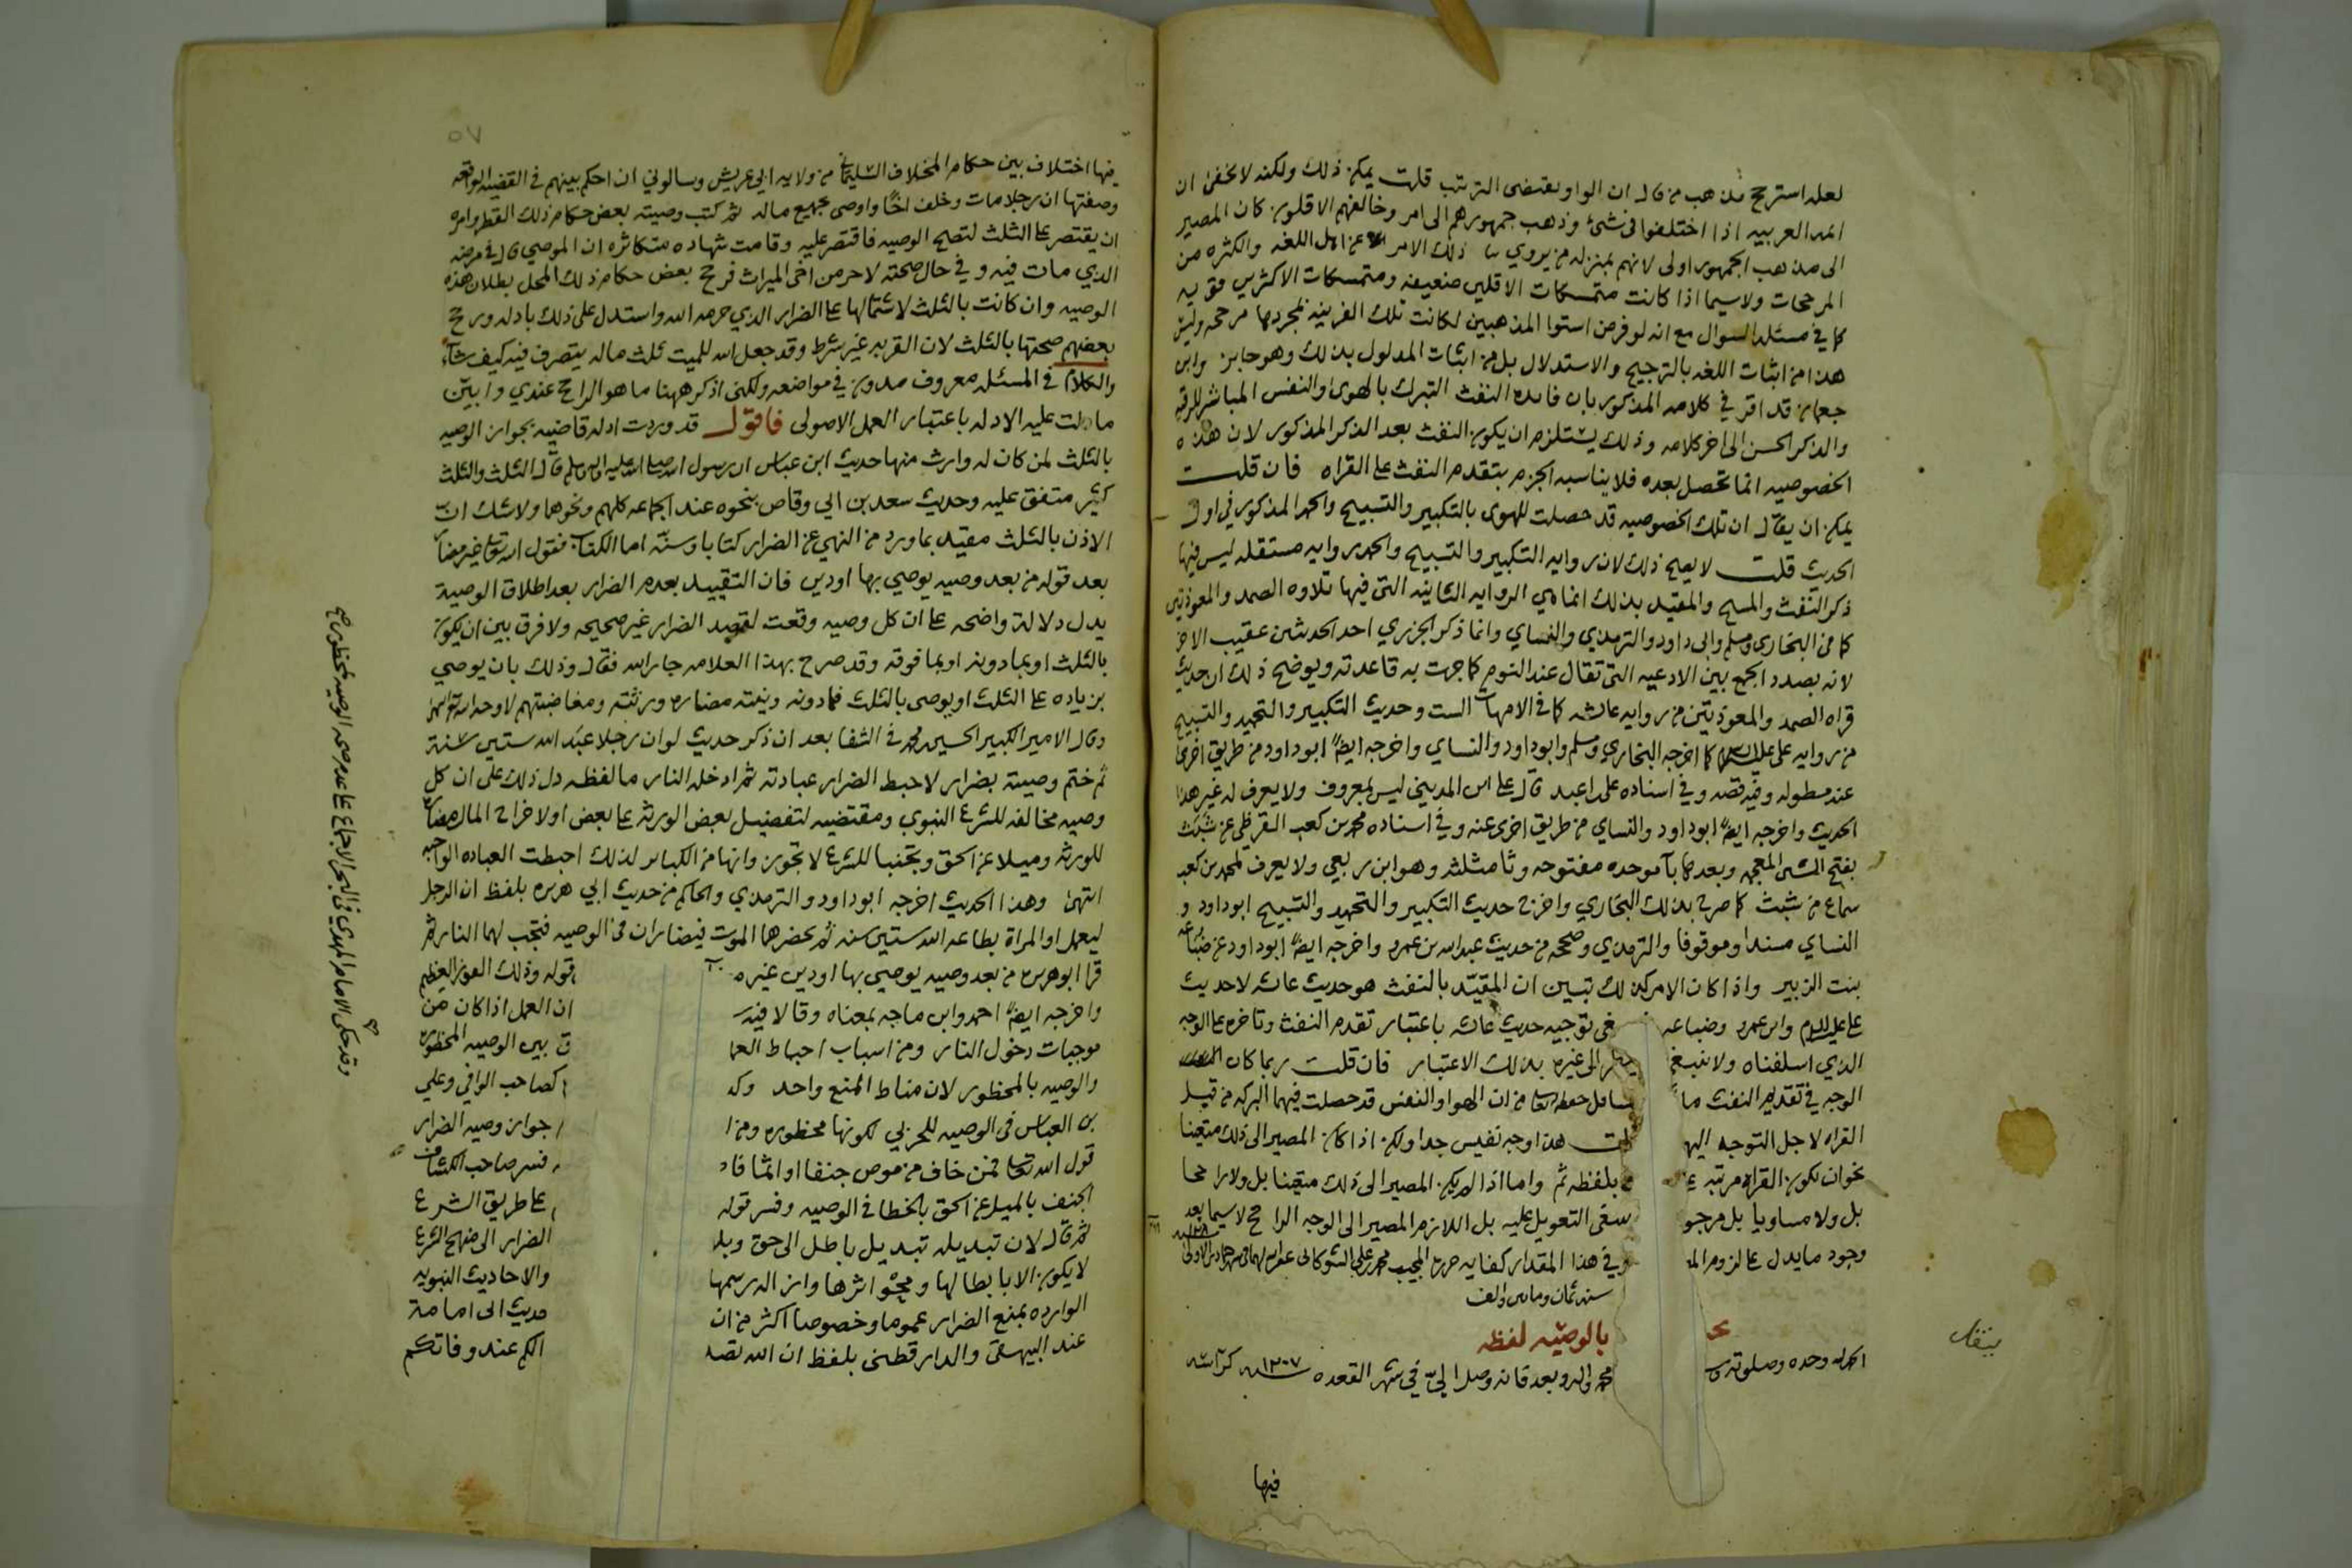 لعله استرجح مذهب من قال ان الواو يقتضى الترتيب قلت يمكن ذلك ولكنه لا يخفى ان
ائمه العربيه اذا اختلفوا فى شئ وذهب جمهورهم الى امر وخالفهم الاقلون كان المصير
الى مذهب الجمهور اولى لانهم بمنزله من يروي ذلك الامر عن اهل اللغه والكثره من
المرجحات ولاسيما اذا كانت متمسكات الاقلين ضعيفه ومتمسكات الاكثرين قويه
كما في مسئله السوال مع انه لو فرض استوا المذهبين لكانت تلك القرينه بمجردها مرجحه وليس
هذا من اثبات اللغه بالترجيح والاستدلال بل من اثبات المدلول بذلك وهو جايز وابن
جعمان قد اقر في كلامه المذكور بان فايده النفث التبرك بالهوى والنفس المباشر للرقيه
والذكر الحسن الى اخر كلامه وذلك يستلزم ان يكون النفث بعد الذكر المذكور لان هذه
الخصوصيه انما تحصل بعده فلا يناسبه الجزم بتقدم النفث على القراه فان قلت
يمكن ان يقال ان تلك الخصوصيه قد حصلت للهوى بالتكبير والتسبيح والحمد المذكور في اول
الحديث قلت لا يصح ذلك لان روايه التكبير والتسبيح والحمد روايه مستقله ليس فيها
ذكر النفث والمسح والمقيد بذلك انما هي الروايه الثانيه التى فيها تلاوه الصمد والمعوذتين
كما من البخارى ومسلم وابى داود والترمذي والنساي وانما ذكر الجزري احد الحديثين عقيب الاخر
لانه بصدد الجمع بين الادعيه التى تقال عند النوم كما جرت به قاعدته ويوضح ذلك ان حديث
قراه الصمد والمعوذتين من روايه عائشه كما في الامهات الست وحديث التكبير والتحميد والتسبيح
من روايه على عليه السلام كما اخرجه البخاري ومسلم وابو داود والنساي واخرجه ايضًا ابو داود من طريق اخرى
عنه مطوله وفيه قصه وفي اسناده على اعبد قال على ابن المديني ليس بمعروف ولا يعرف له غير هذا
الحديث واخرجه ايضًا ابو داود والنساي من طريق اخرى عنه وفي اسناده محمد بن كعب القرظي عن شبث
بفتح الشين المعجمه وبعدها بآ موحده مفتوحه وثا مثلثه وهو ابن ربعي ولا يعرف لمحمد بن كعب
سماع من شبث كما صرح بذلك البخاري واخرج حديث التكبير والتحميد والتسبيح ابو داود و
النساي مسندا وموقوفا والترمذي وصححه من حديث عبد الله بن عمرو واخرجه ايضًا ابو داود عن ضباعه
بنت الزبير واذا كان الامر كذلك تبين ان المقيّد بالنفث هو حديث عائشه لا حديث
على عليه السلام وابن عمرو وضباعه توجيه حديث عائشه باعتبار تقدم النفث وتاخره على الوجه
الذي اسلفناه ولا ينبغى الى غيره بذلك الاعتبار فان قلت ربما كان
الوجه في تقديم النفث ما من ان الهوا والنفس قد حصلت فيهما البركه من قبيل
القراه لاجل التوجه اليها هذا وجه نفيس جدا ولكن اذا كان المصير الى ذلك متعينا
نحو ان تكون القراه مرتبه بلفظه ثم واما اذا لم يكن المصير الى ذلك متعينا بل ولا راجحا
بل ولا مساويا بل مرجو التعويل عليه بل اللازم المصير الى الوجه الراجح لاسيما بعد
وجود ما يدل على لزوم وفي هذا المقدار كفايه حرره المجيب محمد بن علي الشوكانى
سنه ثمان ومايتين والف
بالوصيه لفظه
الحمد لله وحده وصلوته محمد واله وبعد فانه وصل اليّ في شهر القعده سنه ١٢٠٧
فيها
٥٧
فيها اختلاف بين حكام المخلاف السليماني من ولايه ابى عريش وسالوني ان احكم بينهم في القضيه الواقعه
وصفتها ان رجلا مات وخلف اخًا واوصى بجميع ماله ثم كتب وصيته بعض حكام ذلك القطر وامره
ان يقتصر على الثلث لتصح الوصيه فاقتصر عليه وقامت شهاده متكاثره ان الموصي قال في مرضه
الذي مات فيه وفي حال صحته لاحرمن اخى الميراث فرجح بعض حكام ذلك المحل بطلان هذه
الوصيه وان كانت بالثلث لاشتمالها على الضرار الذي حرمه الله واستدل على ذلك بادله ورجح
بعضهم صحتها بالثلث لان القربه غير شرط وقد جعل الله للميت ثلث ماله يتصرف فيه كيف شآء
والكلام في المسئله معروف مدون في مواضعه ولكنى اذكر ههنا ما هو الراجح عندي وابيّن
ما دلت عليه الادله باعتبار العمل الاصولى فاقول قد وردت ادله قاضيه بجواز الوصيه
بالثلث لمن كان له وارث منها حديث ابن عباس ان رسول الله صلى الله عليه واله وسلم قال الثلث والثلث
كثير متفق عليه وحديث سعد بن ابي وقاص بنحوه عند الجماعه كلهم ونحوها ولا شك ان
الاذن بالثلث مقيد بما ورد من النهي عن الضرار كتابا وسنة اما الكتاب فقول الله تعالى غير مضار
بعد قوله من بعد وصيه يوصي بها او دين فان التقييد بعدم الضرار بعد اطلاق الوصية
يدل دلالة واضحه على ان كل وصيه وقعت لقصد الضرار غير صحيحه ولا فرق بين ان يكون
بالثلث او بما دونه او بما فوقه وقد صرح بهذا العلامه جار الله فقال وذلك بان يوصي
بزياده على الثلث او يوصى بالثلث فما دونه ونيته مضاره ورثته ومغاضبتهم لا وجه الله
وقال الامير الكبير الحسين بن محمد في الشفا بعد ان ذكر حديث لو ان رجلا عبد الله ستين سنة
ثم ختم وصيته بضرار لاحبط الضرار عبادته ثم ادخله النار ما لفظه دل ذلك على ان كل
وصيه مخالفه للشرع النبوي ومقتضيه لتفضيل بعض الورثه على بعض او لاخراج المال مضارّة
للورثه وميلا عن الحق وتجنبا للشرع لا تجوز وانها من الكبائر لذلك احبطت العباده الواجبه
انتهى وهذا الحديث اخرجه ابو داود والترمذي والحاكم من حديث ابي هريره بلفظ ان الرجل
ليعمل او المراة بطاعه الله ستين سنه ثم يحضرهما الموت فيضاران في الوصيه فتجب لهما النار ثم
قرا ابو هريره من بعد وصيه يوصي بها او دين غير قوله وذلك الفوز العظيم
واخرجه ايضًا احمد وابن ماجه بمعناه وقالا فيه ان العمل اذا كان من
موجبات دخول النار ومن اسباب احباط العمل بين الوصيه المحظوره
والوصيه بالمحظور لان مناط المنع واحد كصاحب الوافي وعلي
بن العباس فى الوصيه للحربي لكونها محظوره جواز وصيه الضرار
قول الله تعالى فمن خاف من موص جنفا او اثما فسر صاحب الكشاف
الجنف بالميل عن الحق بالخطا في الوصيه وفسر قوله على طريق الشرع
ثم قال لان تبديله تبديل باطل الى حق الضرار الى منهج الشرع
لا يكون الا بابطالها ومحو اثرها وازاله رسمها والاحاديث النبويه
الوارده بمنع الضرار عموما وخصوصا اكثر من ان حديث ابى امامة
عند البيهقى والدارقطنى بلفظ ان الله تصد الكم عند وفاتكم
وقد حكى الامام المهدي فى البحر الاجماع على عدم صحه الوصيه بمحظور صح